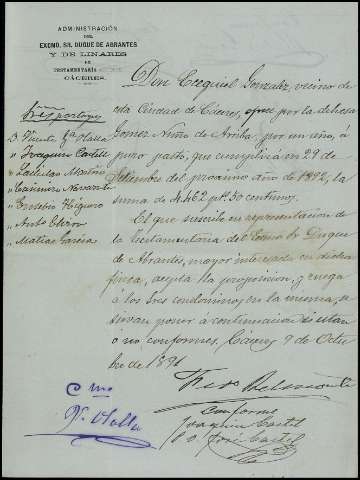 ADMINISTRACIÓN
DEL
EXCMO. SR. DUQUE DE ABRANTES
Y DE LINARES
SU
TESTAMENTARÍA
CÁCERES.
Don Ezequiel Gonzalez, vecino de
esta Ciudad de Cáceres, por la dehesa
Gomez Nuño de Arriba por un año, á
puro pasto, que cumplirá en 29 de
Setiembre del proximo año de 1892, la
suma de 4.462 pts. 50 centimos.
El que suscribe en representacion de
la Testamentaria del Excmo Sr Duque
de Abrantes, mayor interesado en dicha
finca, acepta la proposicion, y ruega
á los Sres condominos en la misma, se
sirvan poner á continuacion si estan
ó no conformes. Cáceres 9 de Octu
bre de 1891
D. Vicente Gª Olalla
" Joaquin Castel
" Ladislao Martin
" Casimiro Navarrete
" Eusebio Higuero
" Antº
" Matias Garcia
Conforme
Joaquin Castel
José Castel
Cme
Vª Olalla